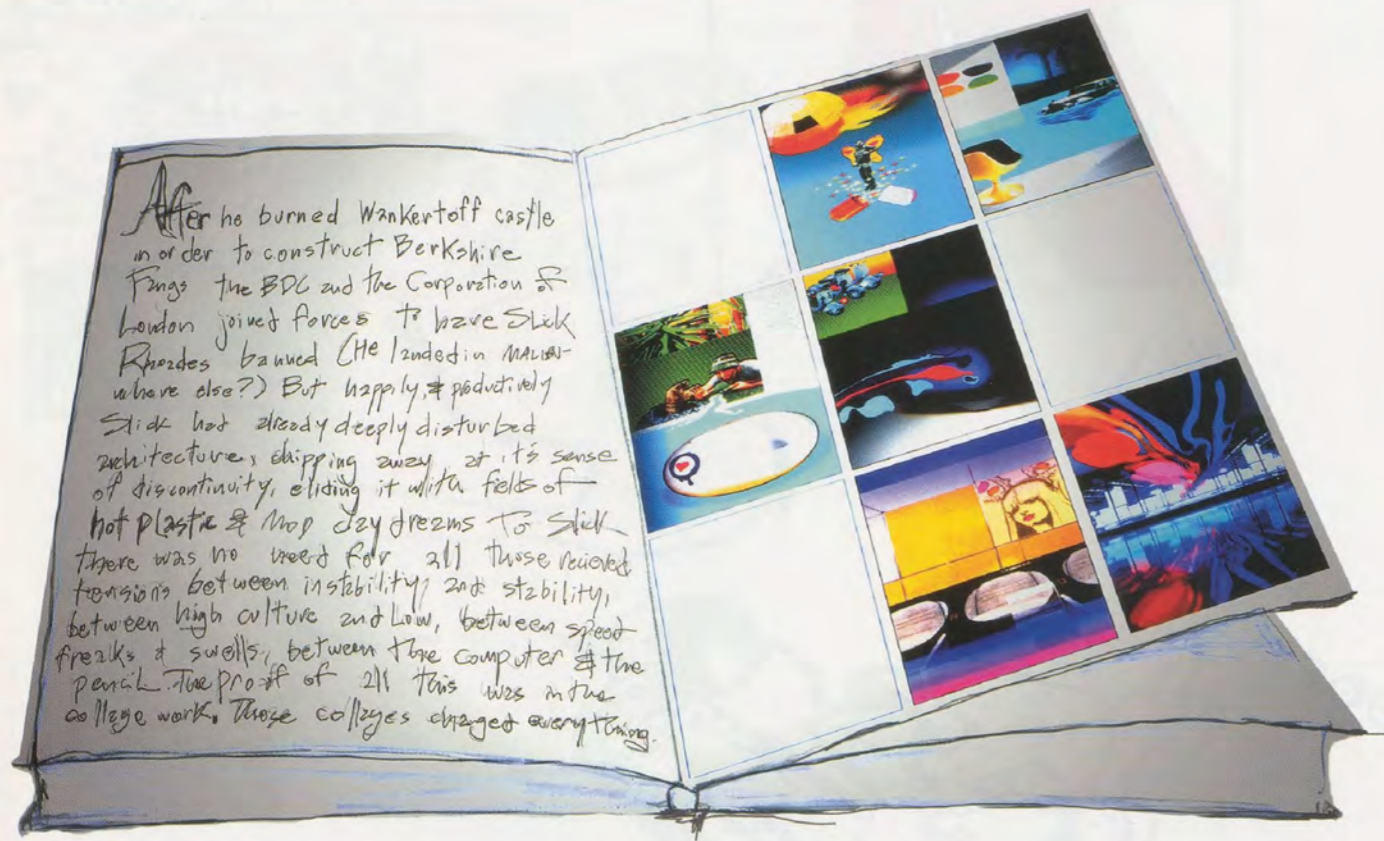 After he burned Wankertoff castle
in order to construct Berkshire
Fangs the BDC and the Corporation of
London joined forces to have Slick
Rhoades banned (He landed in MALIBU-
where else?) But happily, & productively
Slick had already deeply disturbed
architecture, chipping away at it's sense
of discontinuity, eliding it with fields of
hot plastic & Mod daydreams To Slick
there was no need for all those recieved
tensions between instability, and stability,
between high culture and Low, between speed
freaks & swells, between the computer & the
pencil. The proof of all this was in the
collage work. Those collages changed everything.